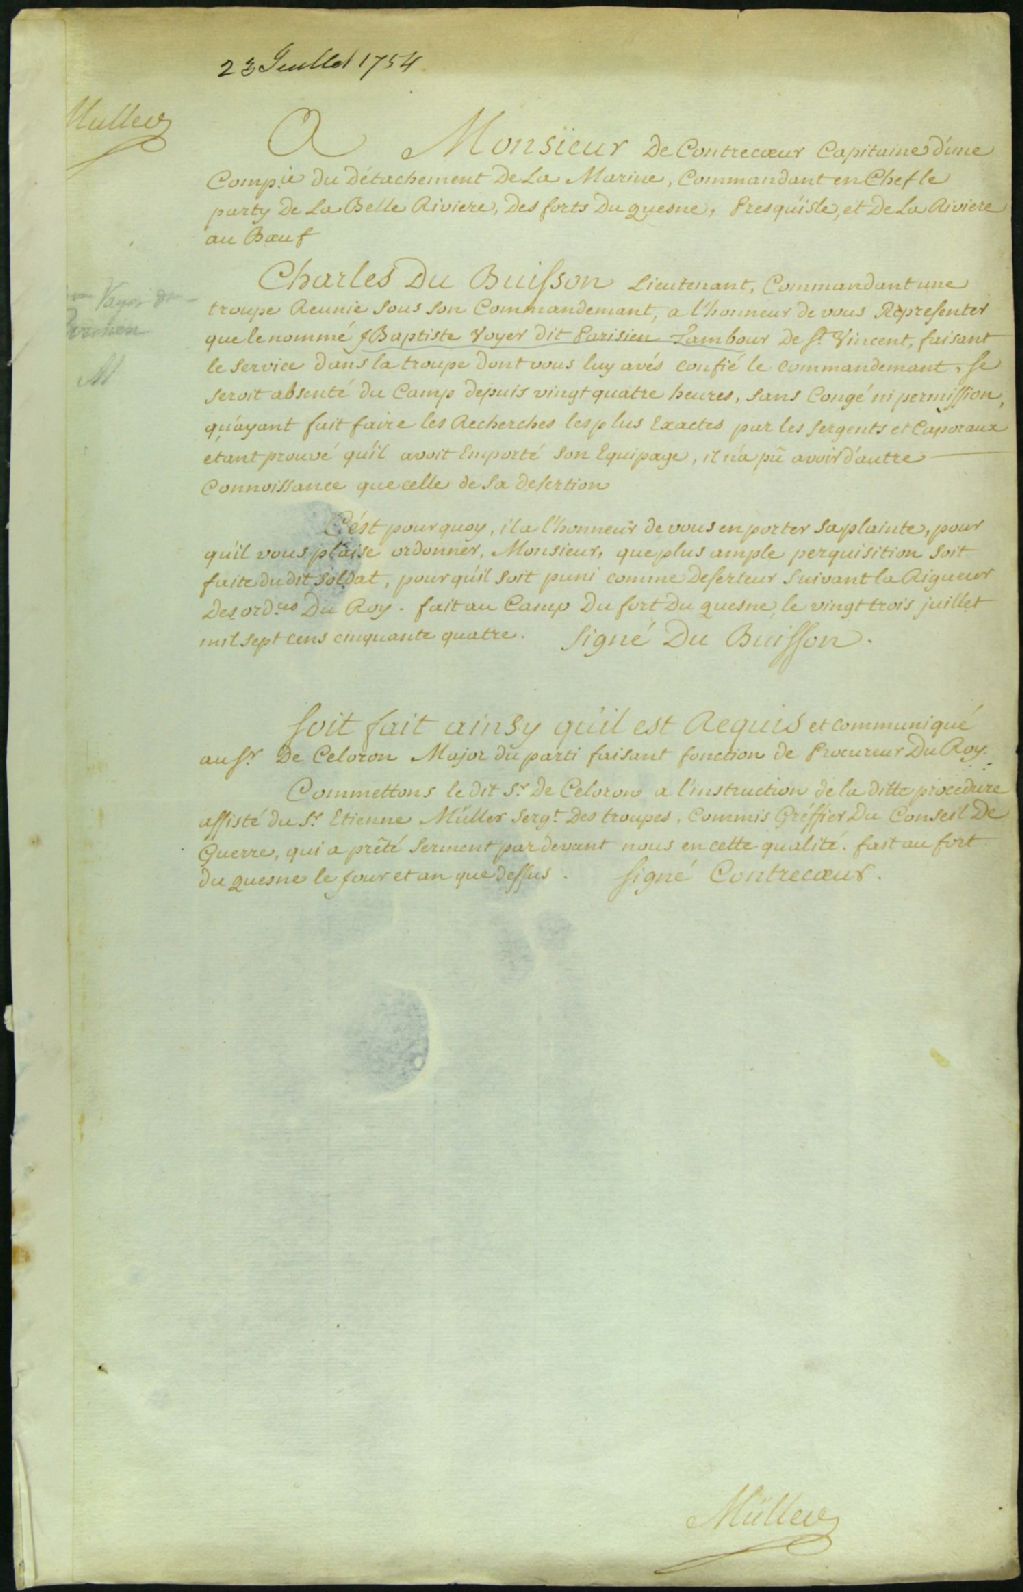 23 Juillet 1754
Müller
A Monsieur De Contrecœur Capitaine d'une
Comp.ie du Détachement De La Marine, Commandant en Chef le
party de La Belle Riviere, Des forts Du quesne, Presqu'isle, et De La Riviere
au Bœuf
Charles Du Buisson Lieutenant, Commandant une
troupe Reunie Sous Son Commandemant, a l'honneur de vous Representer
que le nommé J Baptiste Voyer dit Parisien Tambour De St. Vincent, faisant
le Service dans la troupe dont vous luy avés confié le commandemant, Se
Seroit absenté du Camp depuis vingt quatre heures, Sans Congé ni permission,
qu'ayant fait faire les Recherches les plus Exactes par les Sergents et Caporaux
etant prouvé qu'il avoit Emporté Son Equipage, il n'a pû avoir d'autre
Connoissance que celle de Sa desertion
C'ést pourquoy, il a l'honneur de vous en porter Sa plainte, pour
qu'il vous plaise ordonner, Monsieur, que plus ample perquisition Soit
faite du dit Soldat, pour qu'il Soit puni comme Deserteur Suivant la Rigueur
Des ord.ces Du Roy. fait au Camp Du fort Du quesne, le vingt trois juillet
mil Sept cens cinquante quatre. Signé Du Buisson.
Soit fait ainsy qu'il est Requis et communiqué
au Sr. De Celoron Major du parti faisant fonction de Procureur Du Roy.
Commettons le dit Sr. De Celoron a l'instruction de la ditte procedure
assisté du Sr. Etienne Müller Sergt. Des troupes, Commis Gréffier Du Conseil De
Guerre, qui a prêté Serment par devant nous en cette qualité. fait au fort
du quesne le jour et an que dessus. Signé Contrecœur.
Müller